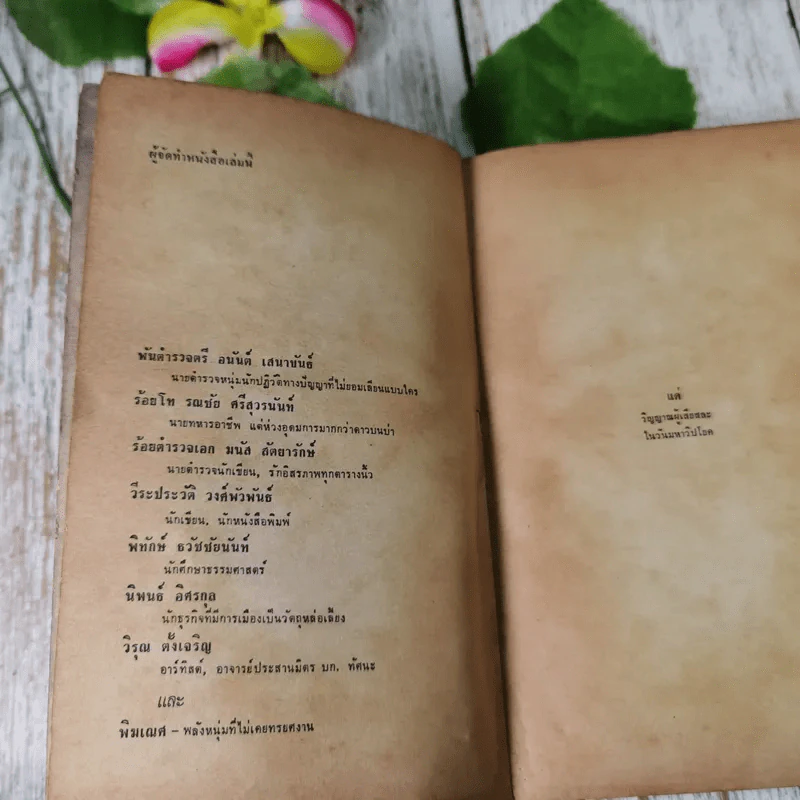 ผู้จัดทำหนังสือเล่มนี้
พันตำรวจตรี อนันต์ เสนาขันธ์
นายตำรวจหนุ่มนักปฏิวัติทางปัญญาที่ไม่ยอมเลียนแบบใคร
ร้อยโท รณชัย ศรีสุวรนันท์
นายทหารอาชีพ แต่ห่วงอุดมการมากกว่าดาวบนบ่า
ร้อยตำรวจเอก มนัส สัตยารักษ์
นายตำรวจนักเขียน, รักอิสรภาพทุกตารางนิ้ว
วีระประวัติ วงศ์พัวพันธ์
นักเขียน, นักหนังสือพิมพ์
พิทักษ์ ธวัชชัยนันท์
นักศึกษาธรรมศาสตร์
นิพนธ์ อิศรกุล
นักธุรกิจที่มีการเมืองเป็นวัตถุหล่อเลี้ยง
วิรุณ ตั้งเจริญ
อาร์ทิสต์, อาจารย์ประสานมิตร บก. ทัศนะ
และ
พิฆเณศ – พลังหนุ่มที่ไม่เคยทรยศงาน
แด่
วิญญาณผู้เสียสละ
ในวันมหาวิปโยค